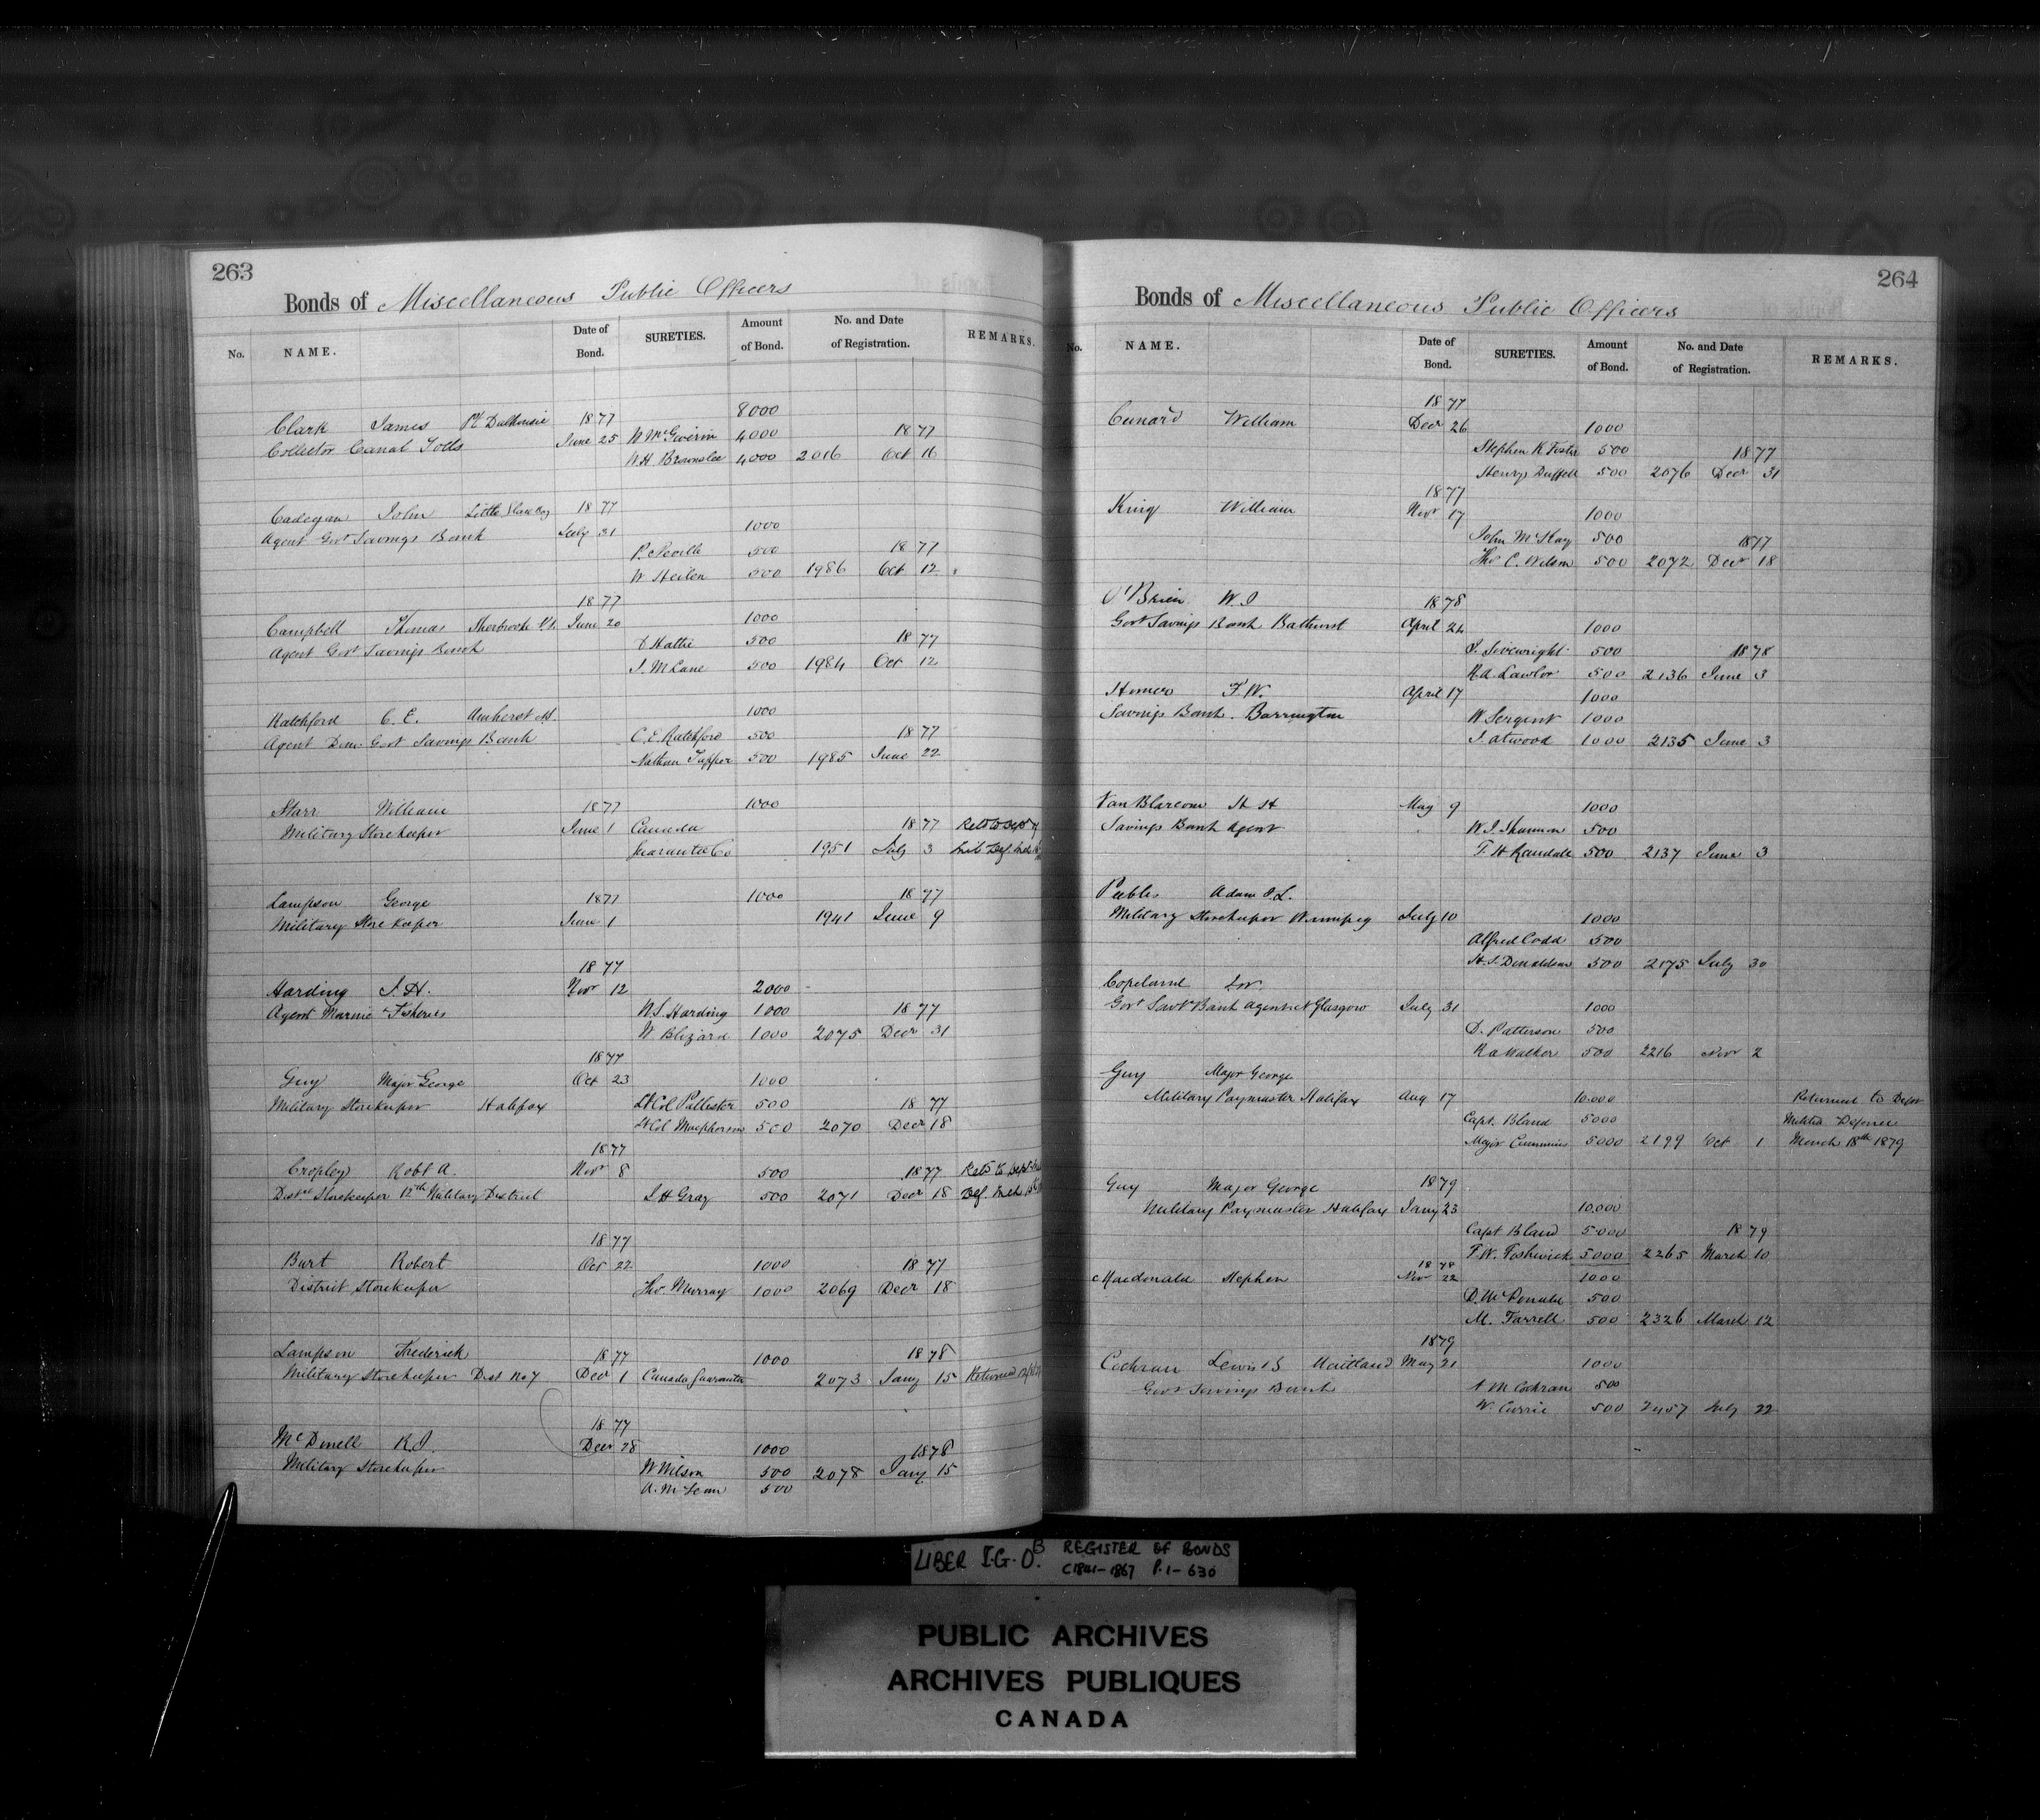 263
Bonds of Miscellaneous Public Officers
No. NAME. Date of Bond. SURETIES. Amount of Bond. No. and Date of Registration. REMARKS.
8000
Clark James Pt Dalhousie 1877
Collector Canal Tolls June 25 W McGiverin 4000 1877
W.H. Brownlee 4000 2016 Oct 16
Cadegan John Little Glace Bay 1877
Agent Govt Savings Bank July 31 1000
P. Neville 500 1877
W 500 1986 Oct 12
1877
Campbell Thomas Sherbrooke N.S. June 20 1000
Agent Govt Savings Bank D Hattie 500 1877
500 1984 Oct 12
Ratchford C. E. Amherst 1000
Agent Dom. Govt Savings Bank C. E. Ratchford 500 1877
Nathan Tupper 500 1985 June 22
Starr William 1877 1000
Military Storekeeper June 1 Canada 1877 Retd to Dept of
Guarantee Co 1951 July 3 Mil. Def.
Lampson George 1877 1000 1877
Military Store Keeper June 1 1941 June 9
1877
Harding J. H. Novr 12 2000
Agent Marine & Fisheries W. S. Harding 1000 1877
W Blizard 1000 2075 Decr 31
1877
Guy Major George Oct 23 1000
Military Storekeeper Halifax Lt Col Pallister 500 1877
Lt Col Macpherson 500 2070 Decr 18
1877
Cropley Robt A. Novr 8 500 1877 Retd to Dept
Distct Storekeeper 12th Military District J. H Gray 500 2071 Decr 18 Def.
1877
Burt Robert Oct 22 1000 1877
District Storekeeper Thos. Murray 1000 2069 Decr 18
Lampson Frederick 1877 1000 1878
Military Storekeeper Dist No 7 Decr 1 Canada Guarantee 2073 Jany 15 Returned
1877
McDonell R. J. Decr 28 1000 1878
Military Storekeeper W Wilson 500 2078 Jany 15
A. McLean 500
264
Bonds of Miscellaneous Public Officers
No. NAME. Date of Bond. SURETIES. Amount of Bond. No. and Date of Registration. REMARKS.
1877
Cunard William Decr 26 1000
Stephen K Foster 500 1877
Henry Duffell 500 2076 Decr 31
1877
King William Novr 17 1000
John McKay 500 1877
Thos C. Wilson 500 2072 Decr 18
O'Brien W. J 1878
Govt Savings Bank Bathurst April 24 1000
J. Sivewright 500 1878
Rd. Lawlor 500 2136 June 3
Homer F. W. April 17 1000
Savings Bank. Barrington W Sergent 1000
J. Atwood 1000 2135 June 3
Van Blarcom H H May 9 1000
Savings Bank Agent W. J. Shannon 500
T. H Randall 500 2137 June 3
Peebles Adam J. L.
Military Storekeeper Winnipeg July 10 1000
Alfred Codd 500
H. S. Donaldson 500 2175 July 30
Copeland
Govt Savgs Bank Agent Nt Glasgow July 31 1000
D. Patterson 500
R A Walker 500 2216 Novr 2
Guy Major George
Military Paymaster Halifax Aug 17 10.000 Returned to Dept
Capt. Bland 5000 Militia Defence
Major Cummins 5000 2199 Oct 1 March 18th 1879
Guy Major George 1879
Military Paymaster Halifax Jany 23 10.000
Capt Bland 5000 1879
T. W. 5000 2265 March 10
1878
Macdonald Stephen Nov 22 1000
D. McDonald 500
M. Farrell 500 2326 March 12
1879
Cochran Lewis B Maitland May 21 1000
Govt Savings Bank A M Cochran 500
W. Currie 500 2457 July 22
LIBER I.G.O.B REGISTER OF BONDS
C1841-1867 P.1-630
PUBLIC ARCHIVES
ARCHIVES PUBLIQUES
CANADA